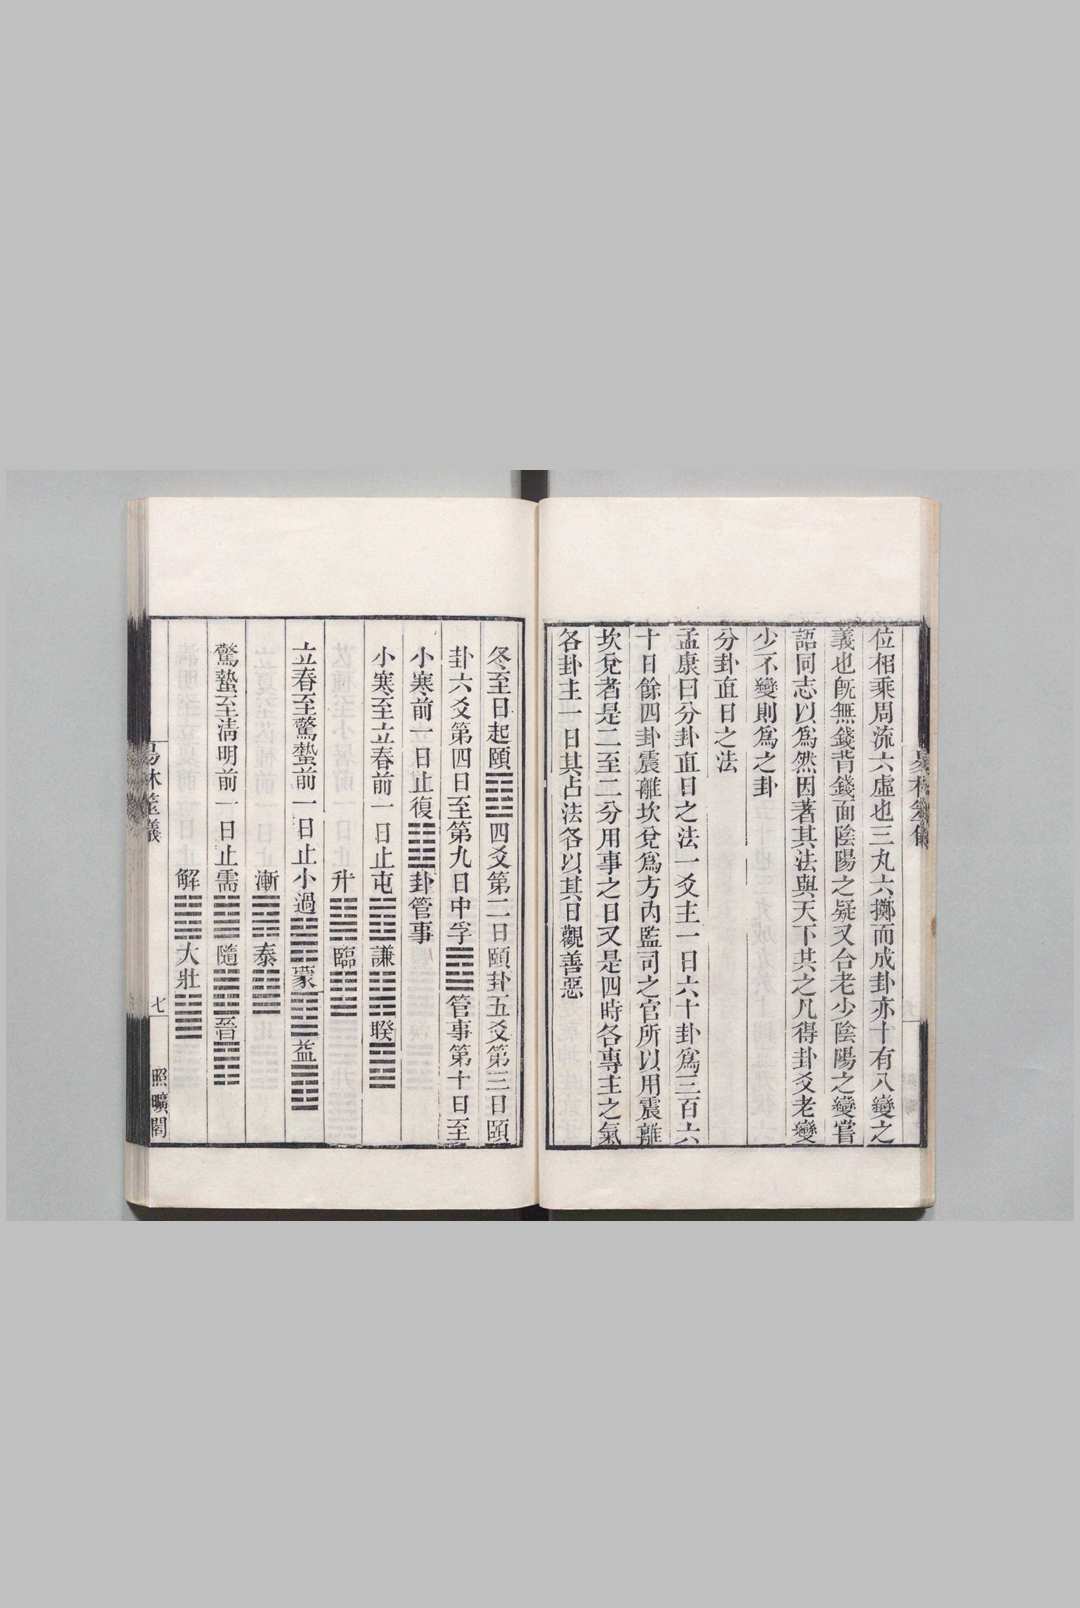 位相乘周流六虛也三丸六擲而成卦亦十有八變之
義也旣無錢背錢面陰陽之疑又合老少陰陽之變嘗
語同志以爲然因著其法與天下共之凡得卦爻老變
少不變則爲之卦
分卦直日之法
孟康曰分卦直日之法一爻主一日六十卦爲三百六
十日餘四卦震離坎兌爲方內監司之官所以用震離
坎兌者是二至二分用事之日又是四時各專主之氣
各卦主一日其占法各以其日觀善惡
冬至日起頤䷚四爻第二日頤卦五爻第三日頤
卦六爻第四日至第九日中孚䷼管事第十日至
小寒前一日止復䷗卦管事
小寒至立春前一日止屯䷂謙䷎睽䷥
升䷭臨䷒
立春至驚蟄前一日止小過䷽蒙䷃益䷩
漸䷴泰䷊
驚蟄至淸明前一日止需䷄隨䷐晉䷢
解䷧大壯䷡
易林筮儀
七
照曠閣